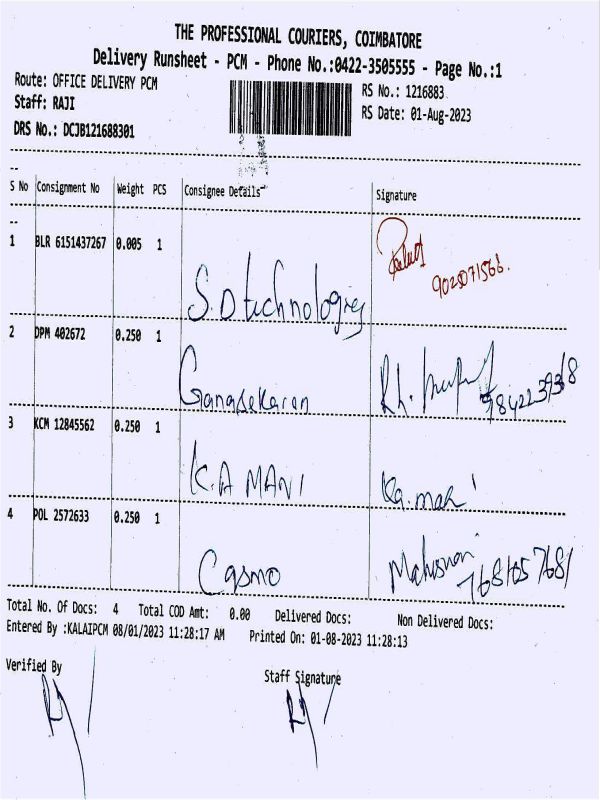 THE PROFESSIONAL COURIERS, COIMBATORE
Delivery Runsheet - PCM - Phone No.:0422-3505555 - Page No.:1
Route: OFFICE DELIVERY PCM RS No.: 1216883
Staff: RAJI RS Date: 01-Aug-2023
DRS No.: DCJB121688301
S No Consignment No Weight PCS Consignee Details Signature
1 BLR 6151437267 0.005 1
S.D technologies
2 DPM 402672 0.250 1
Ganasekaran 9842239368
3 KCM 12845562 0.250 1
K.A MANI Ka.mani
4 POL 2572633 0.250 1
Cosmo 7681057681
Total No. Of Docs: 4 Total COD Amt: 0.00 Delivered Docs: Non Delivered Docs:
Entered By :KALAIPCM 08/01/2023 11:28:17 AM Printed On: 01-08-2023 11:28:13
Verified By Staff Signature